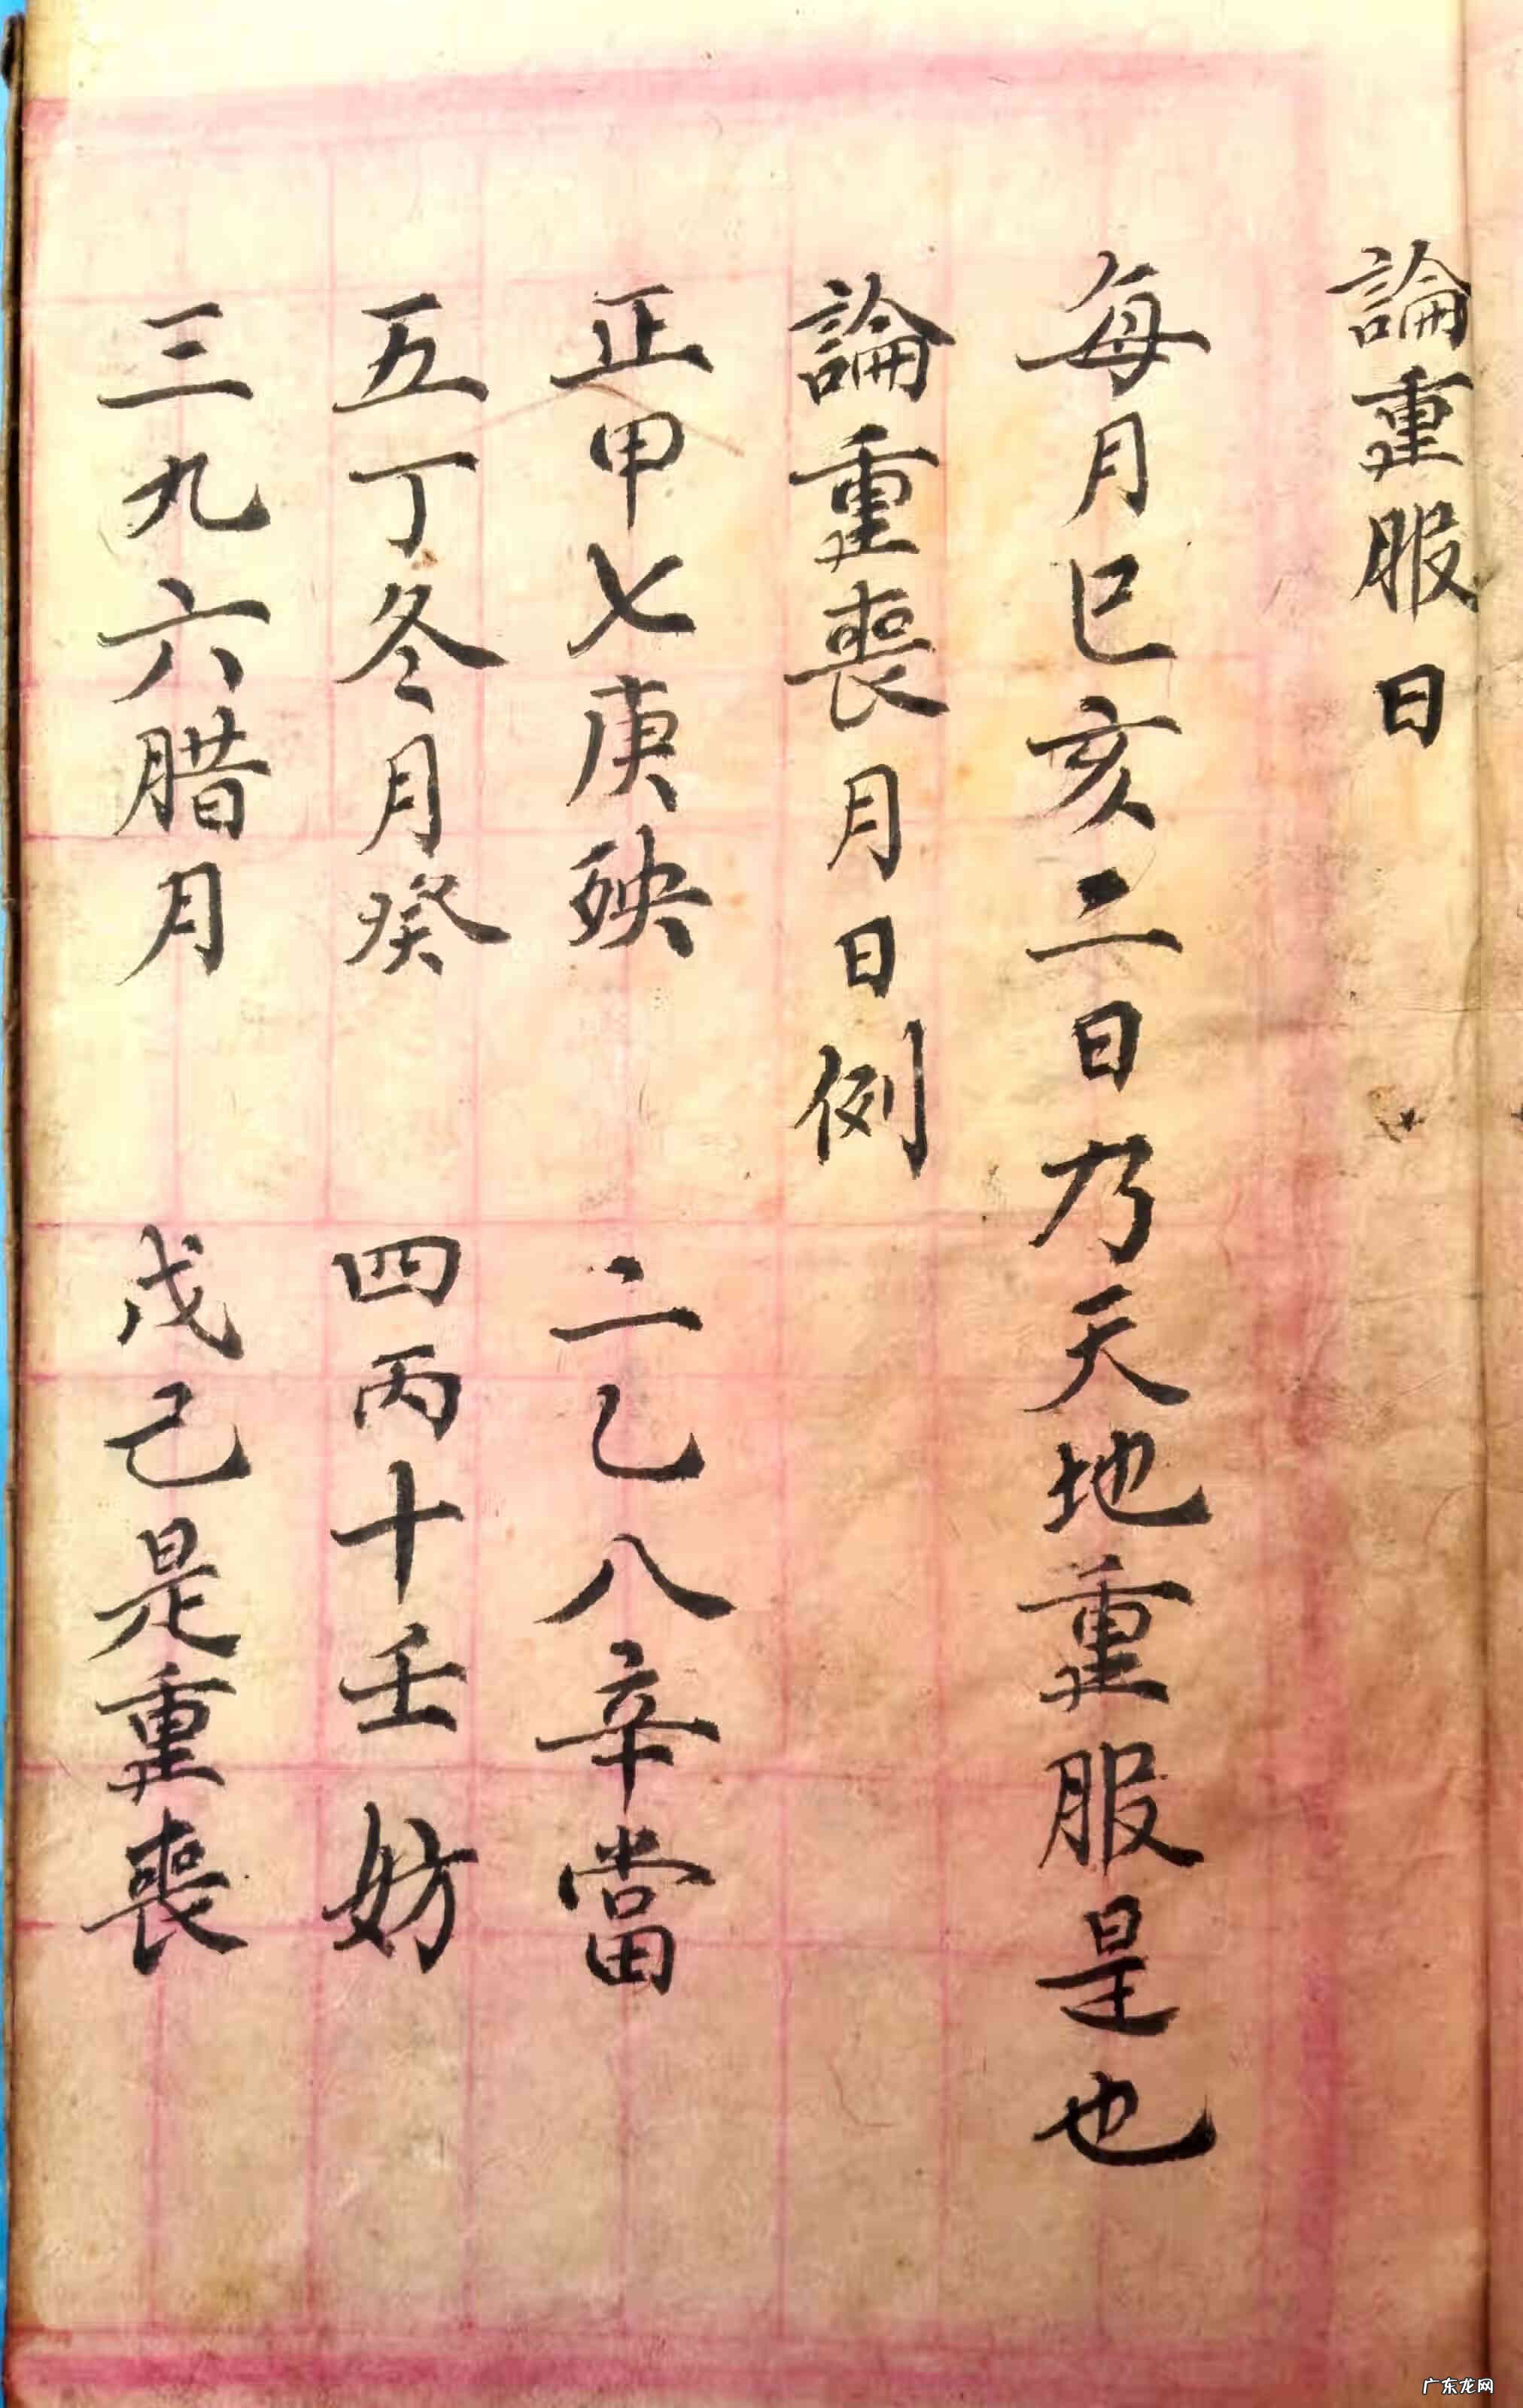 論重服日
每月巳亥二日乃天地重服是也
論重喪月日例
正甲七庚殃 二乙八辛當
五丁冬月癸 四丙十壬妨
三九六腊月 戊己是重喪
广东龙网